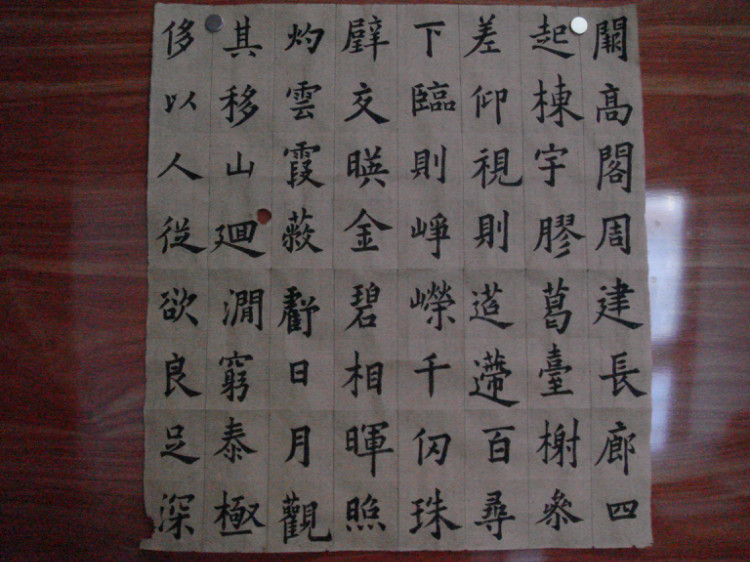 闕高閣周建長廊四
起棟宇膠葛臺榭參
差仰視則迢遰百尋
下臨則崢嶸千仞珠
璧交暎金碧相暉照
灼雲霞蔽虧日月觀
其移山廻澗窮泰極
侈以人從欲良足深